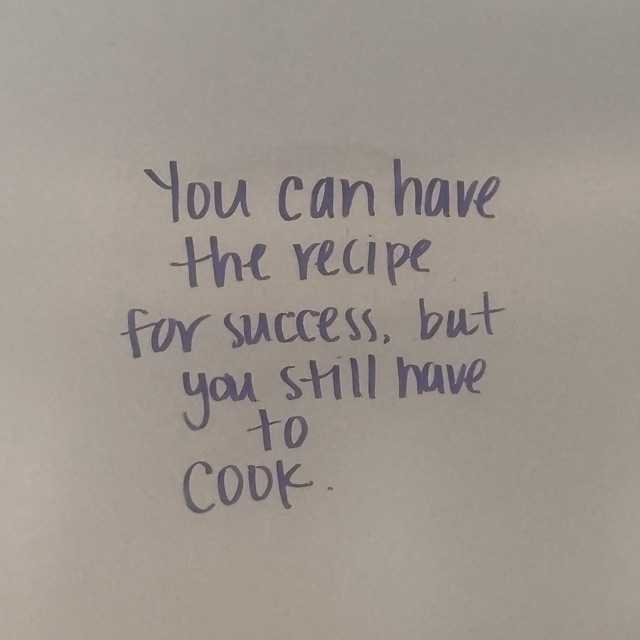 You can have
the recipe
for success, but
you still have
to
COOK.